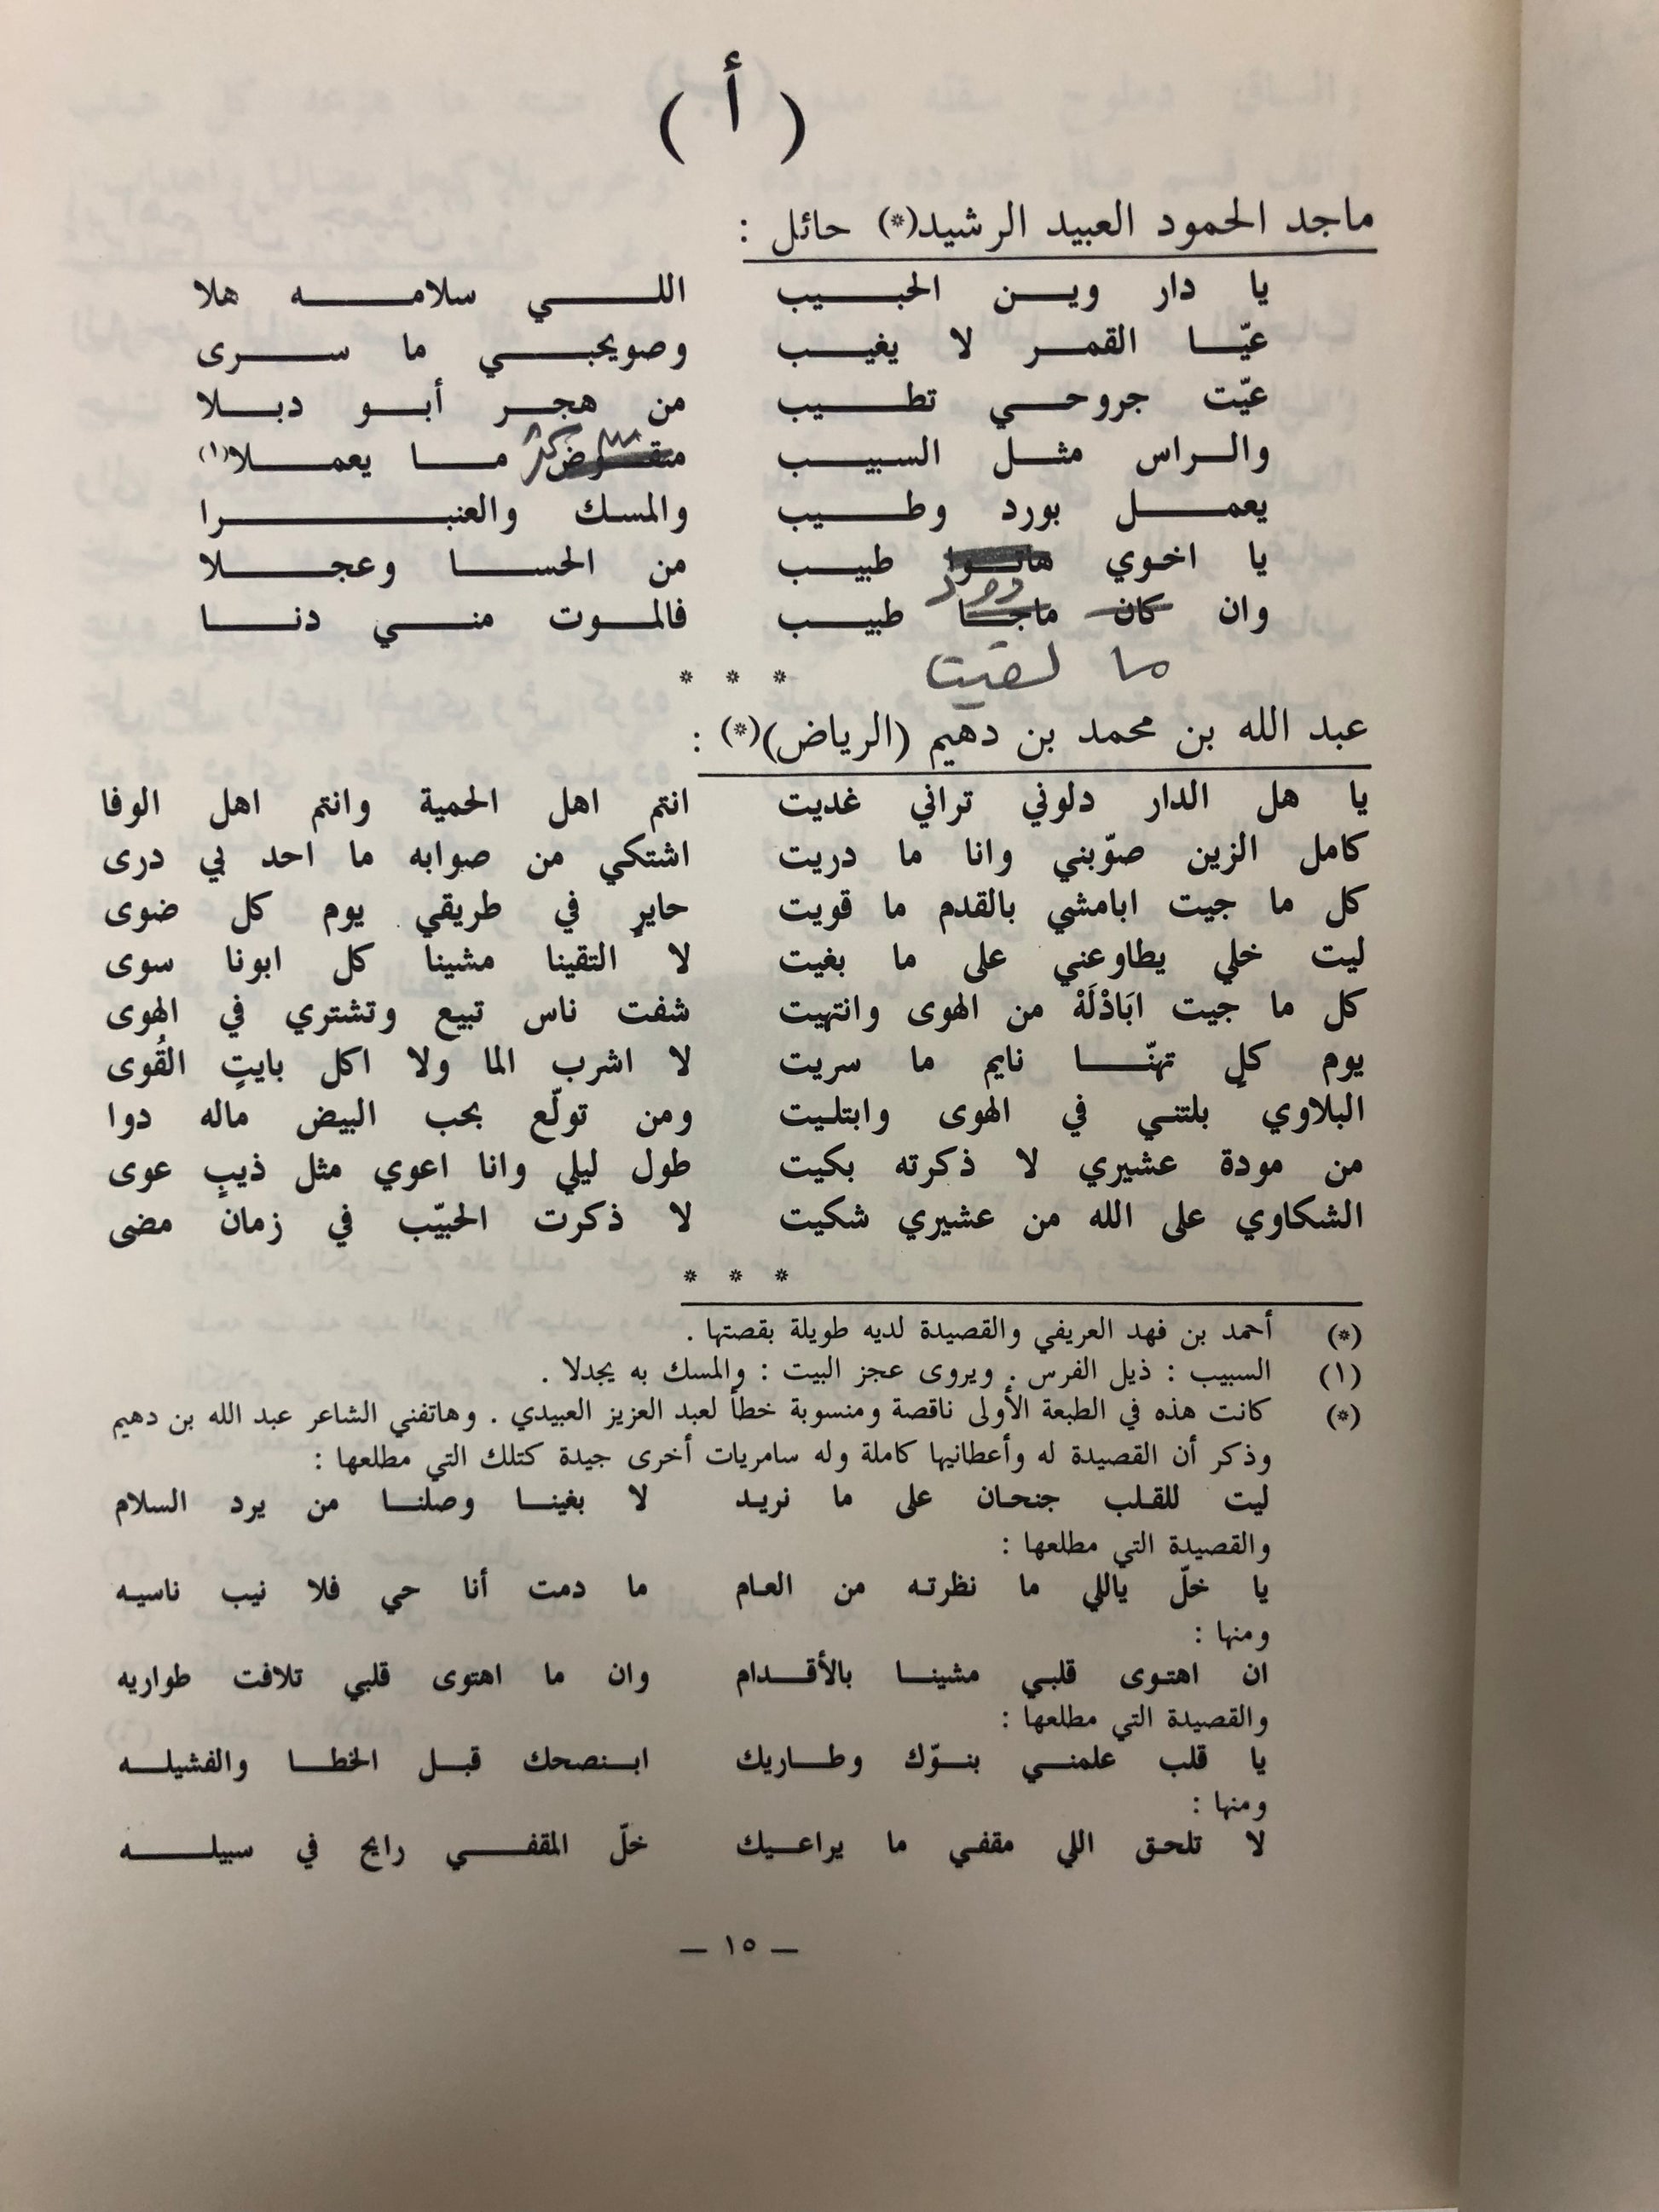 ( أ )
ماجد الحمود العبيد الرشيد(*) حائل :
يا دار ويـن الحبـيب اللـي سلامـه هلا
عيّـا القمـر لا يغيـب وصويحبـي ما سـرى
عيّت جروحـي تطـيب من هجـر أبـو دبـلا
والـراس مثـل السبيـب منقـوض كثر مـا يعمـلا(١)
يعمـل بورد وطـيب والمسك والعنبـرا
يا اخوي هاتـوا طبيـب من الحسـا وعجـلا
وان كان ماجـا طبيـب فالمـوت منـي دنـا
ما لقيت
* * *
عبد الله بن محمد بن دهيم (الرياض)(*) :
يا هل الدار دلوني تراني غديت انتم اهل الحمية وانتم اهل الوفا
كامل الزين صوّبني وانا ما دريت اشتكي من صوابه ما احد بي درى
كل ما جيت ابامشي بالقدم ما قويت حايرٍ في طريقي يوم كل ضوى
ليت خلي يطاوعني على ما بغيت لا التقينا مشينا كل ابونا سوى
كل ما جيت ابَاذْلَهْ من الهوى وانتهيت شفت ناس تبيع وتشتري في الهوى
يوم كلٍ تهنّـا نايم ما سريت لا اشرب الما ولا اكل بايتٍ القُوى
البلاوي بلتني في الهوى وابتليت ومن تولّع بحب البيض ماله دوا
من مودة عشيري لا ذكرته بكيت طول ليلي وانا اعوي مثل ذيبٍ عوى
الشكاوي على الله من عشيري شكيت لا ذكرت الحبيّب في زمان مضى
* * *
(*) أحمد بن فهد العريفي والقصيدة لديه طويلة بقصتها .
(١) السبيب : ذيل الفرس . ويروى عجز البيت : والمسك به يجدلا .
(*) كانت هذه في الطبعة الأولى ناقصة ومنسوبة خطأ لعبد العزيز العبيدي . وهاتفني الشاعر عبد الله بن دهيم
وذكر أن القصيدة له وأعطانيها كاملة وله سامريات أخرى جيدة كتلك التي مطلعها :
ليت للقلب جنحان على ما نريد لا بغينـا وصلنـا من يرد السلام
والقصيدة التي مطلعها :
يا خلّ ياللي ما نظرته من العام ما دمت أنا حي فلا نيب ناسيه
ومنها :
ان اهتوى قلبي مشينـا بالأقـدام وان ما اهتوى قلبي تلافت طواريه
والقصيدة التي مطلعها :
يا قلب علمنـي بنـوّك وطـاريك ابـنصحك قبـل الخطـا والفشيلـه
ومنها :
لا تلحق اللي مقفي ما يراعـيك خلّ المقفـي رايح في سبيلـه
— ١٥ —